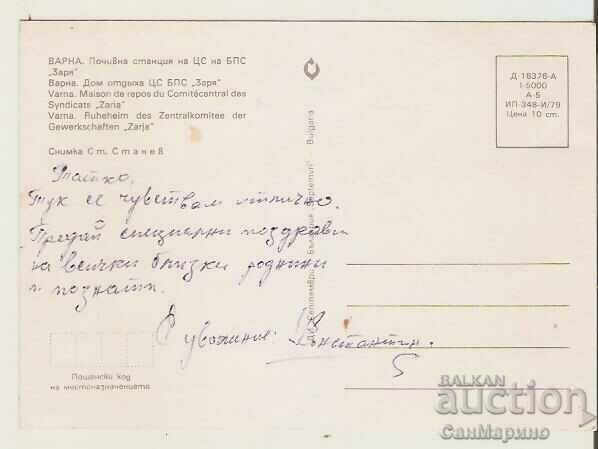 ВАРНА. Почивна станция на ЦС на БПС
„Заря"
Варна. Дом отдыха ЦС БПС „Заря"
Varna. Maison de repos du Comitécentral des
Syndicats „Zaria"
Varna. Ruheheim des Zentralkomitee der
Gewerkschaften „Zarja"
Снимка Ст. Станев
Татко,
Тук се чувствам отлично.
Предай специални поздрави
на всички близки роднини
и познати.
С уважение: Константин.
Пощенски код
на местоназначението
Septemvri" Bulgaria
Д-18376-А
1-5000
А-5
ИП-348-И/79
Цена 10 ст.
BALKAN
auction
СанМарино